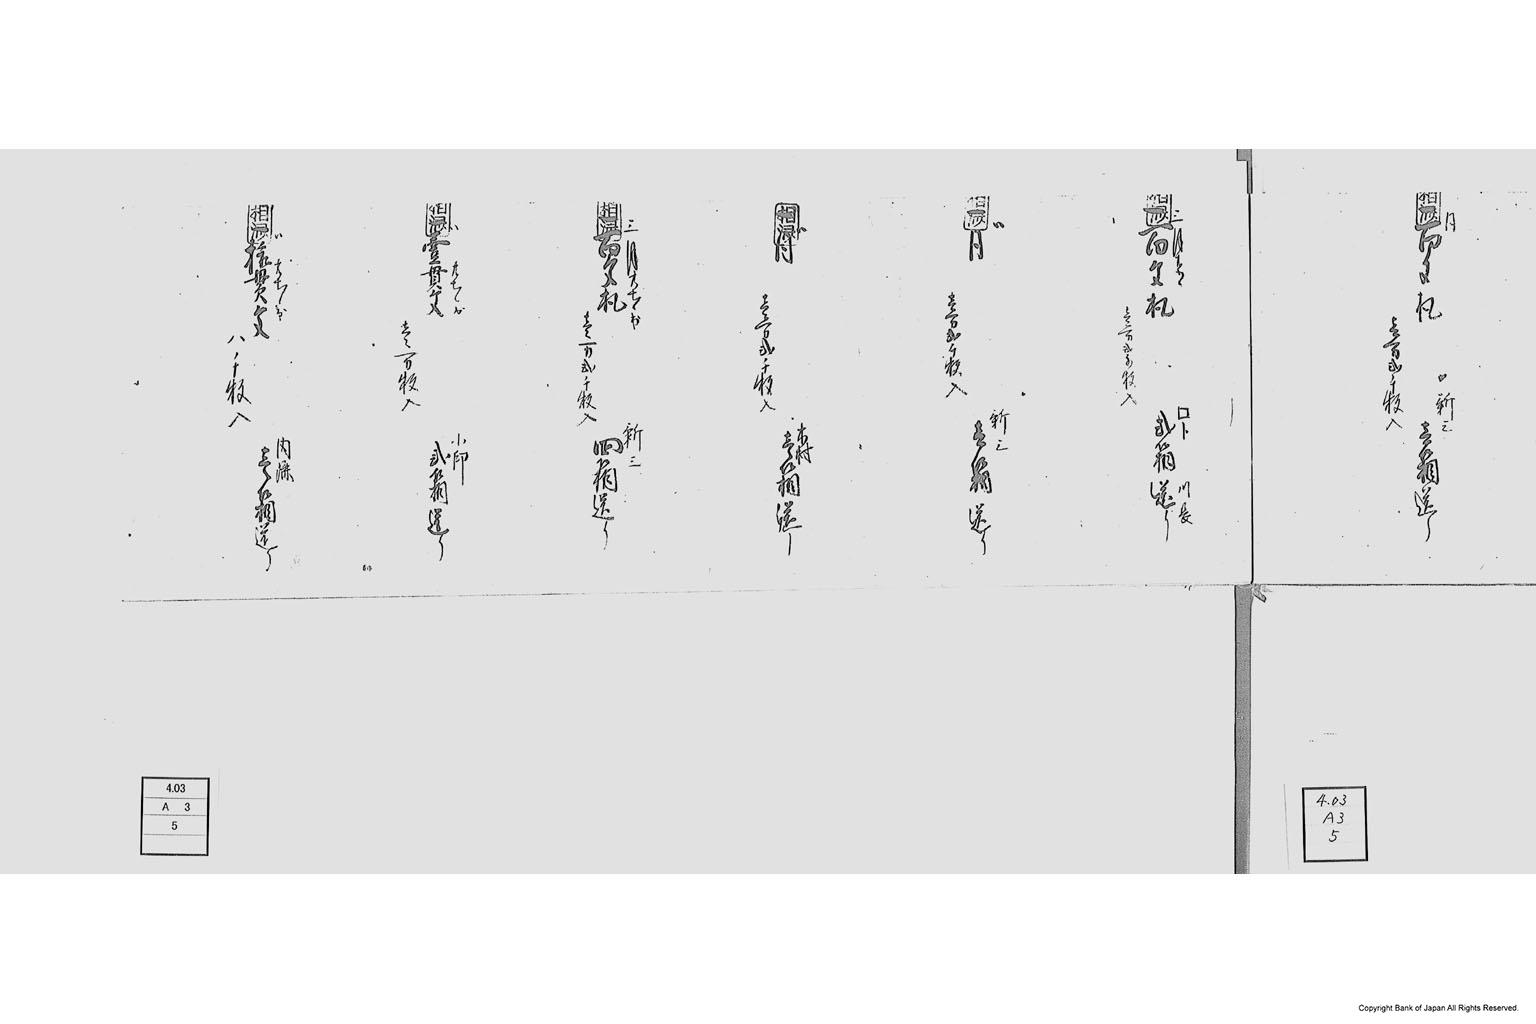 月
相済
百文札
壱万弐千枚入
新三
壱箱送り
三月
相済
百文札
壱万弐千枚入
口ト
弐箱送り
川長
〃
相済
月
壱万弐千枚入
新三
壱箱送り
〃
相済
同
壱万弐千枚入
木村
壱箱送り
三月
相済
百文札
壱万弐千枚入
新三
四箱送り
相済
壹貫文
壱万枚入
小印
弐箱送り
〃
相済
拾貫文
八千枚入
内藤
壱箱送り
4.03
A 3
5
4.03
A3
5
Copyright Bank of Japan All Rights Reserved.